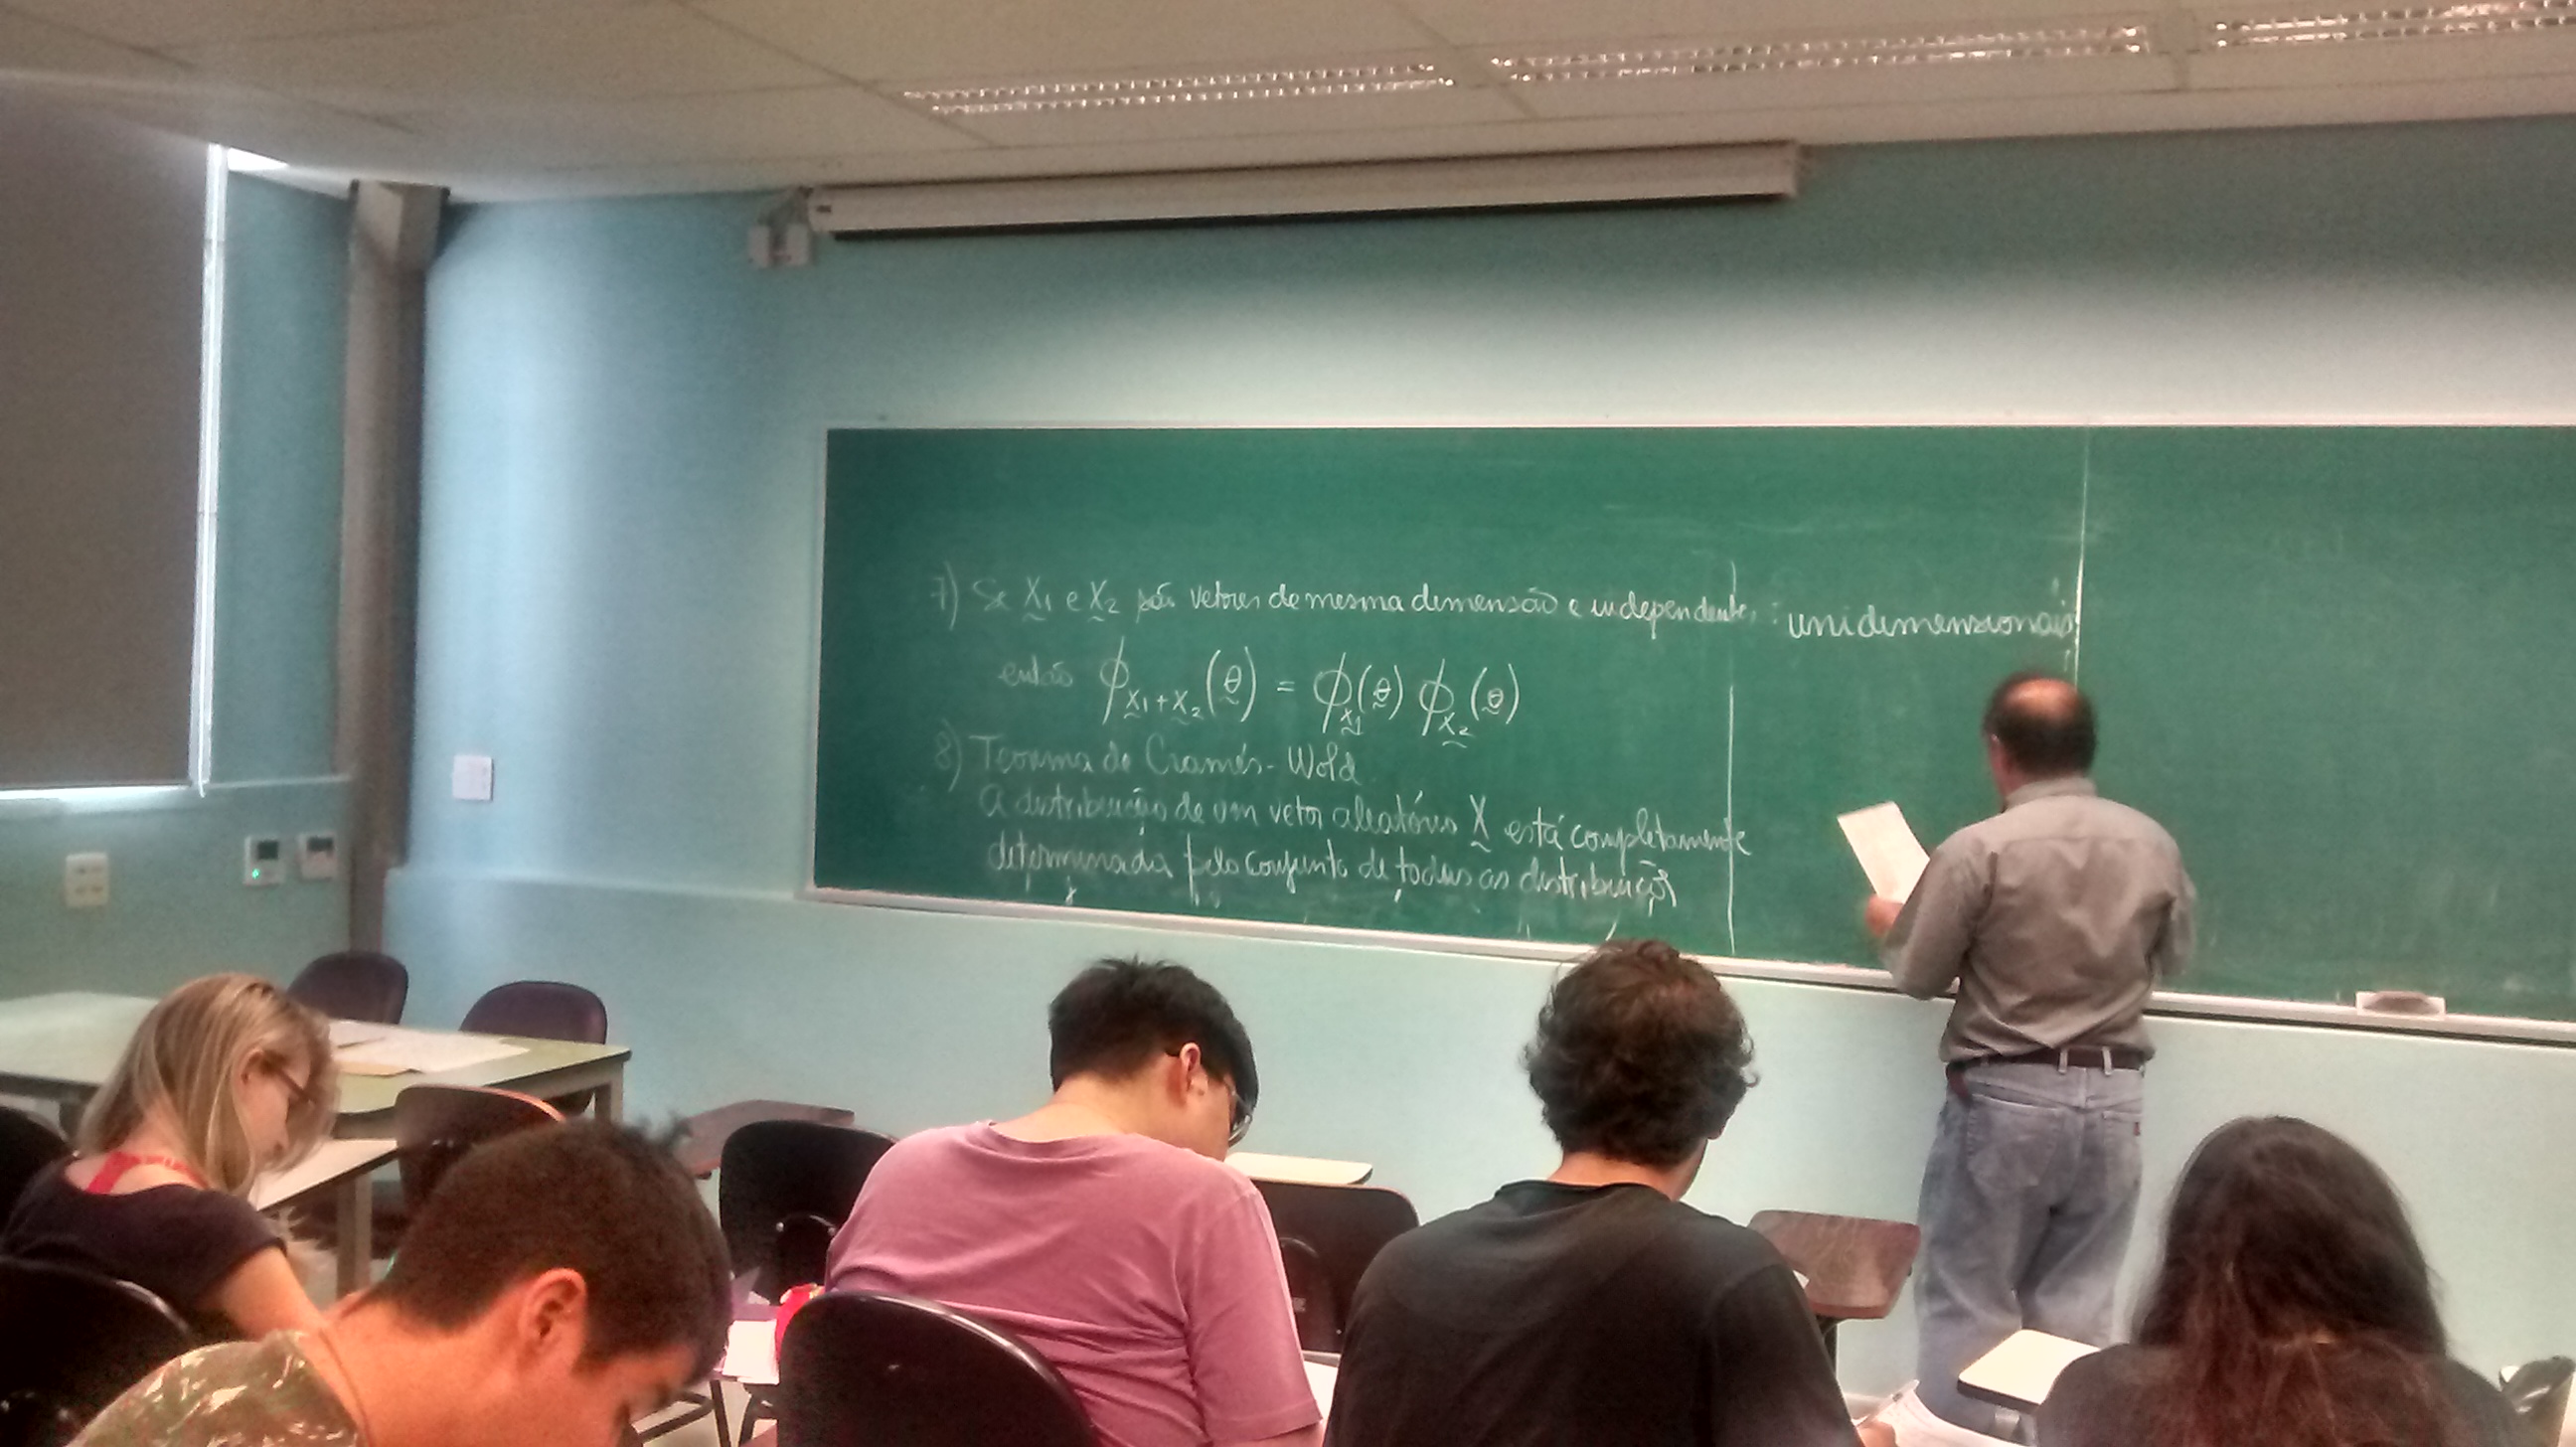 7) Se X₁ e X₂ são vetores de mesma dimensão e independentes
então ϕ_{X₁+X₂}(θ) = ϕ_{X₁}(θ) ϕ_{X₂}(θ)
8) Teorema de Cramér-Wold
A distribuição de um vetor aleatório X está completamente
determinada pelo conjunto de todas as distribuições
unidimensionais